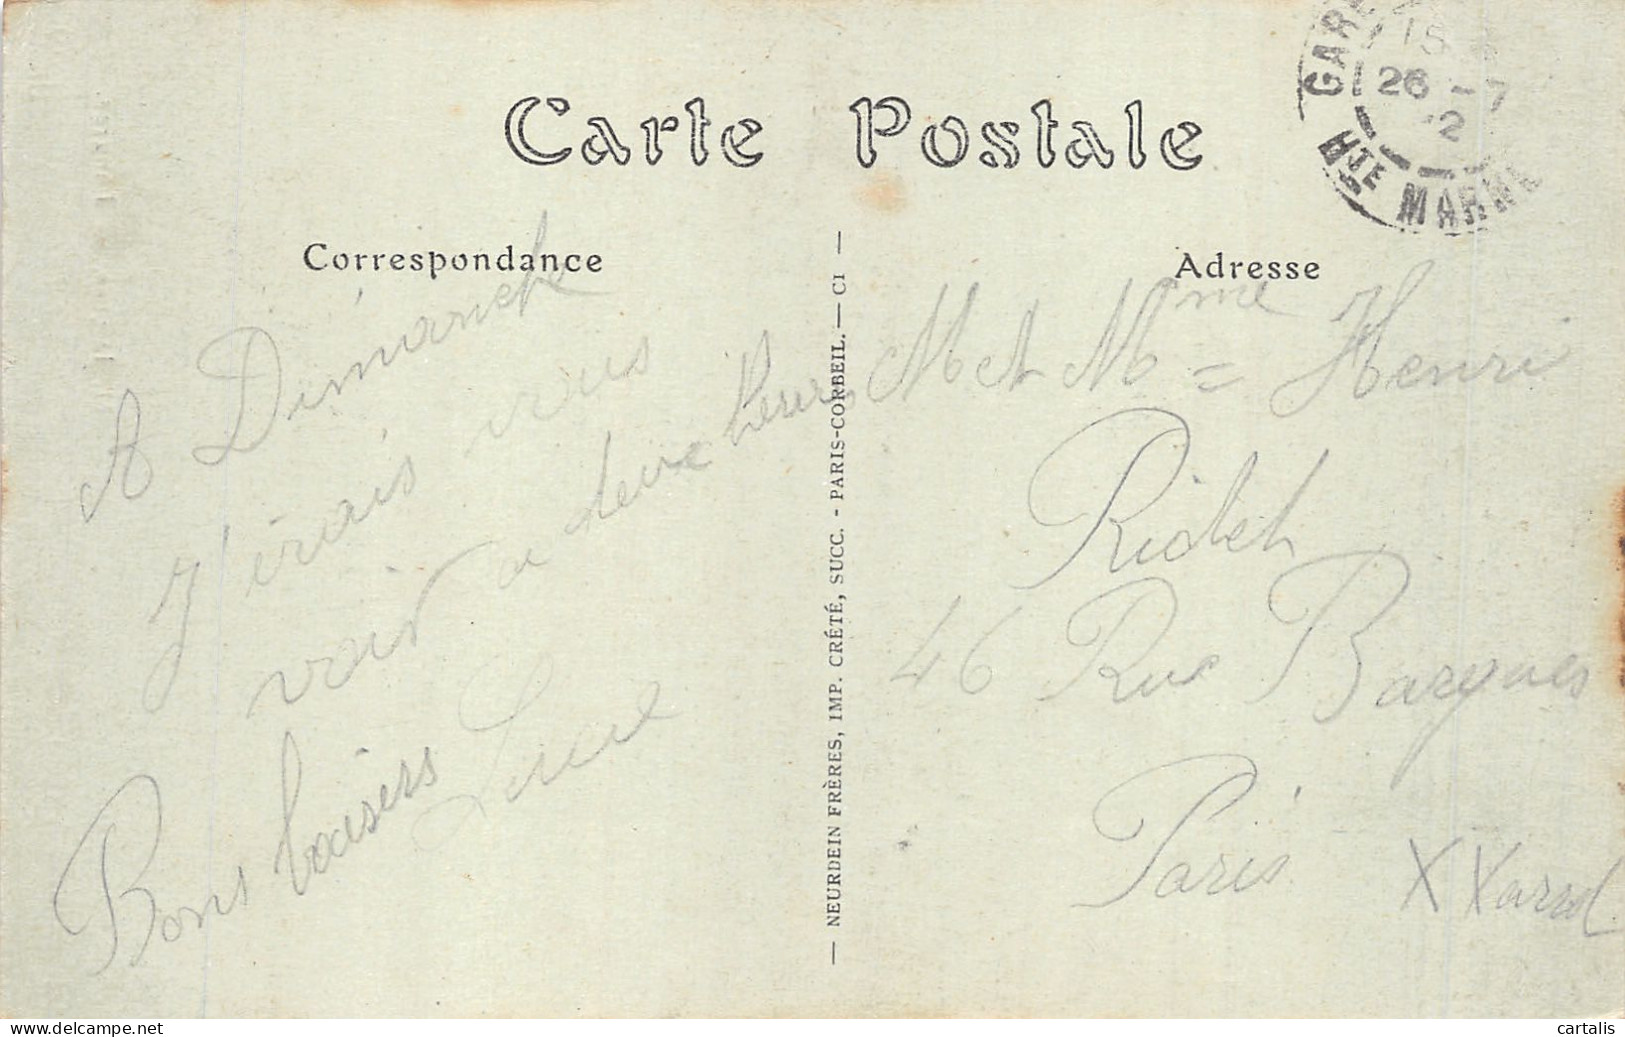 Carte Postale
Correspondance
Adresse
GARE
15
26 - 7
2
HTE MARNE
A Dimanche
J'irais vous
voir a deux heures
Bons baisers
M et Mme = Henri
46 Rue
Paris
— NEURDEIN FRÈRES, IMP. CRÉTÉ, SUCC. - PARIS-CORBEIL. — CI —
delcampe.net
cartalis